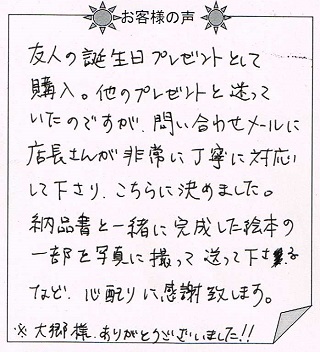 お客様の声
友人の誕生日プレゼントとして
購入。他のプレゼントと迷って
いたのですが、問い合わせメールに
店長さんが非常に丁寧に対応
して下さり、こちらに決めました。
納品書と一緒に完成した絵本の
一部を写真に撮って送って下さる
など、心配りに感謝致します。
※大郷様、ありがとうございました!!